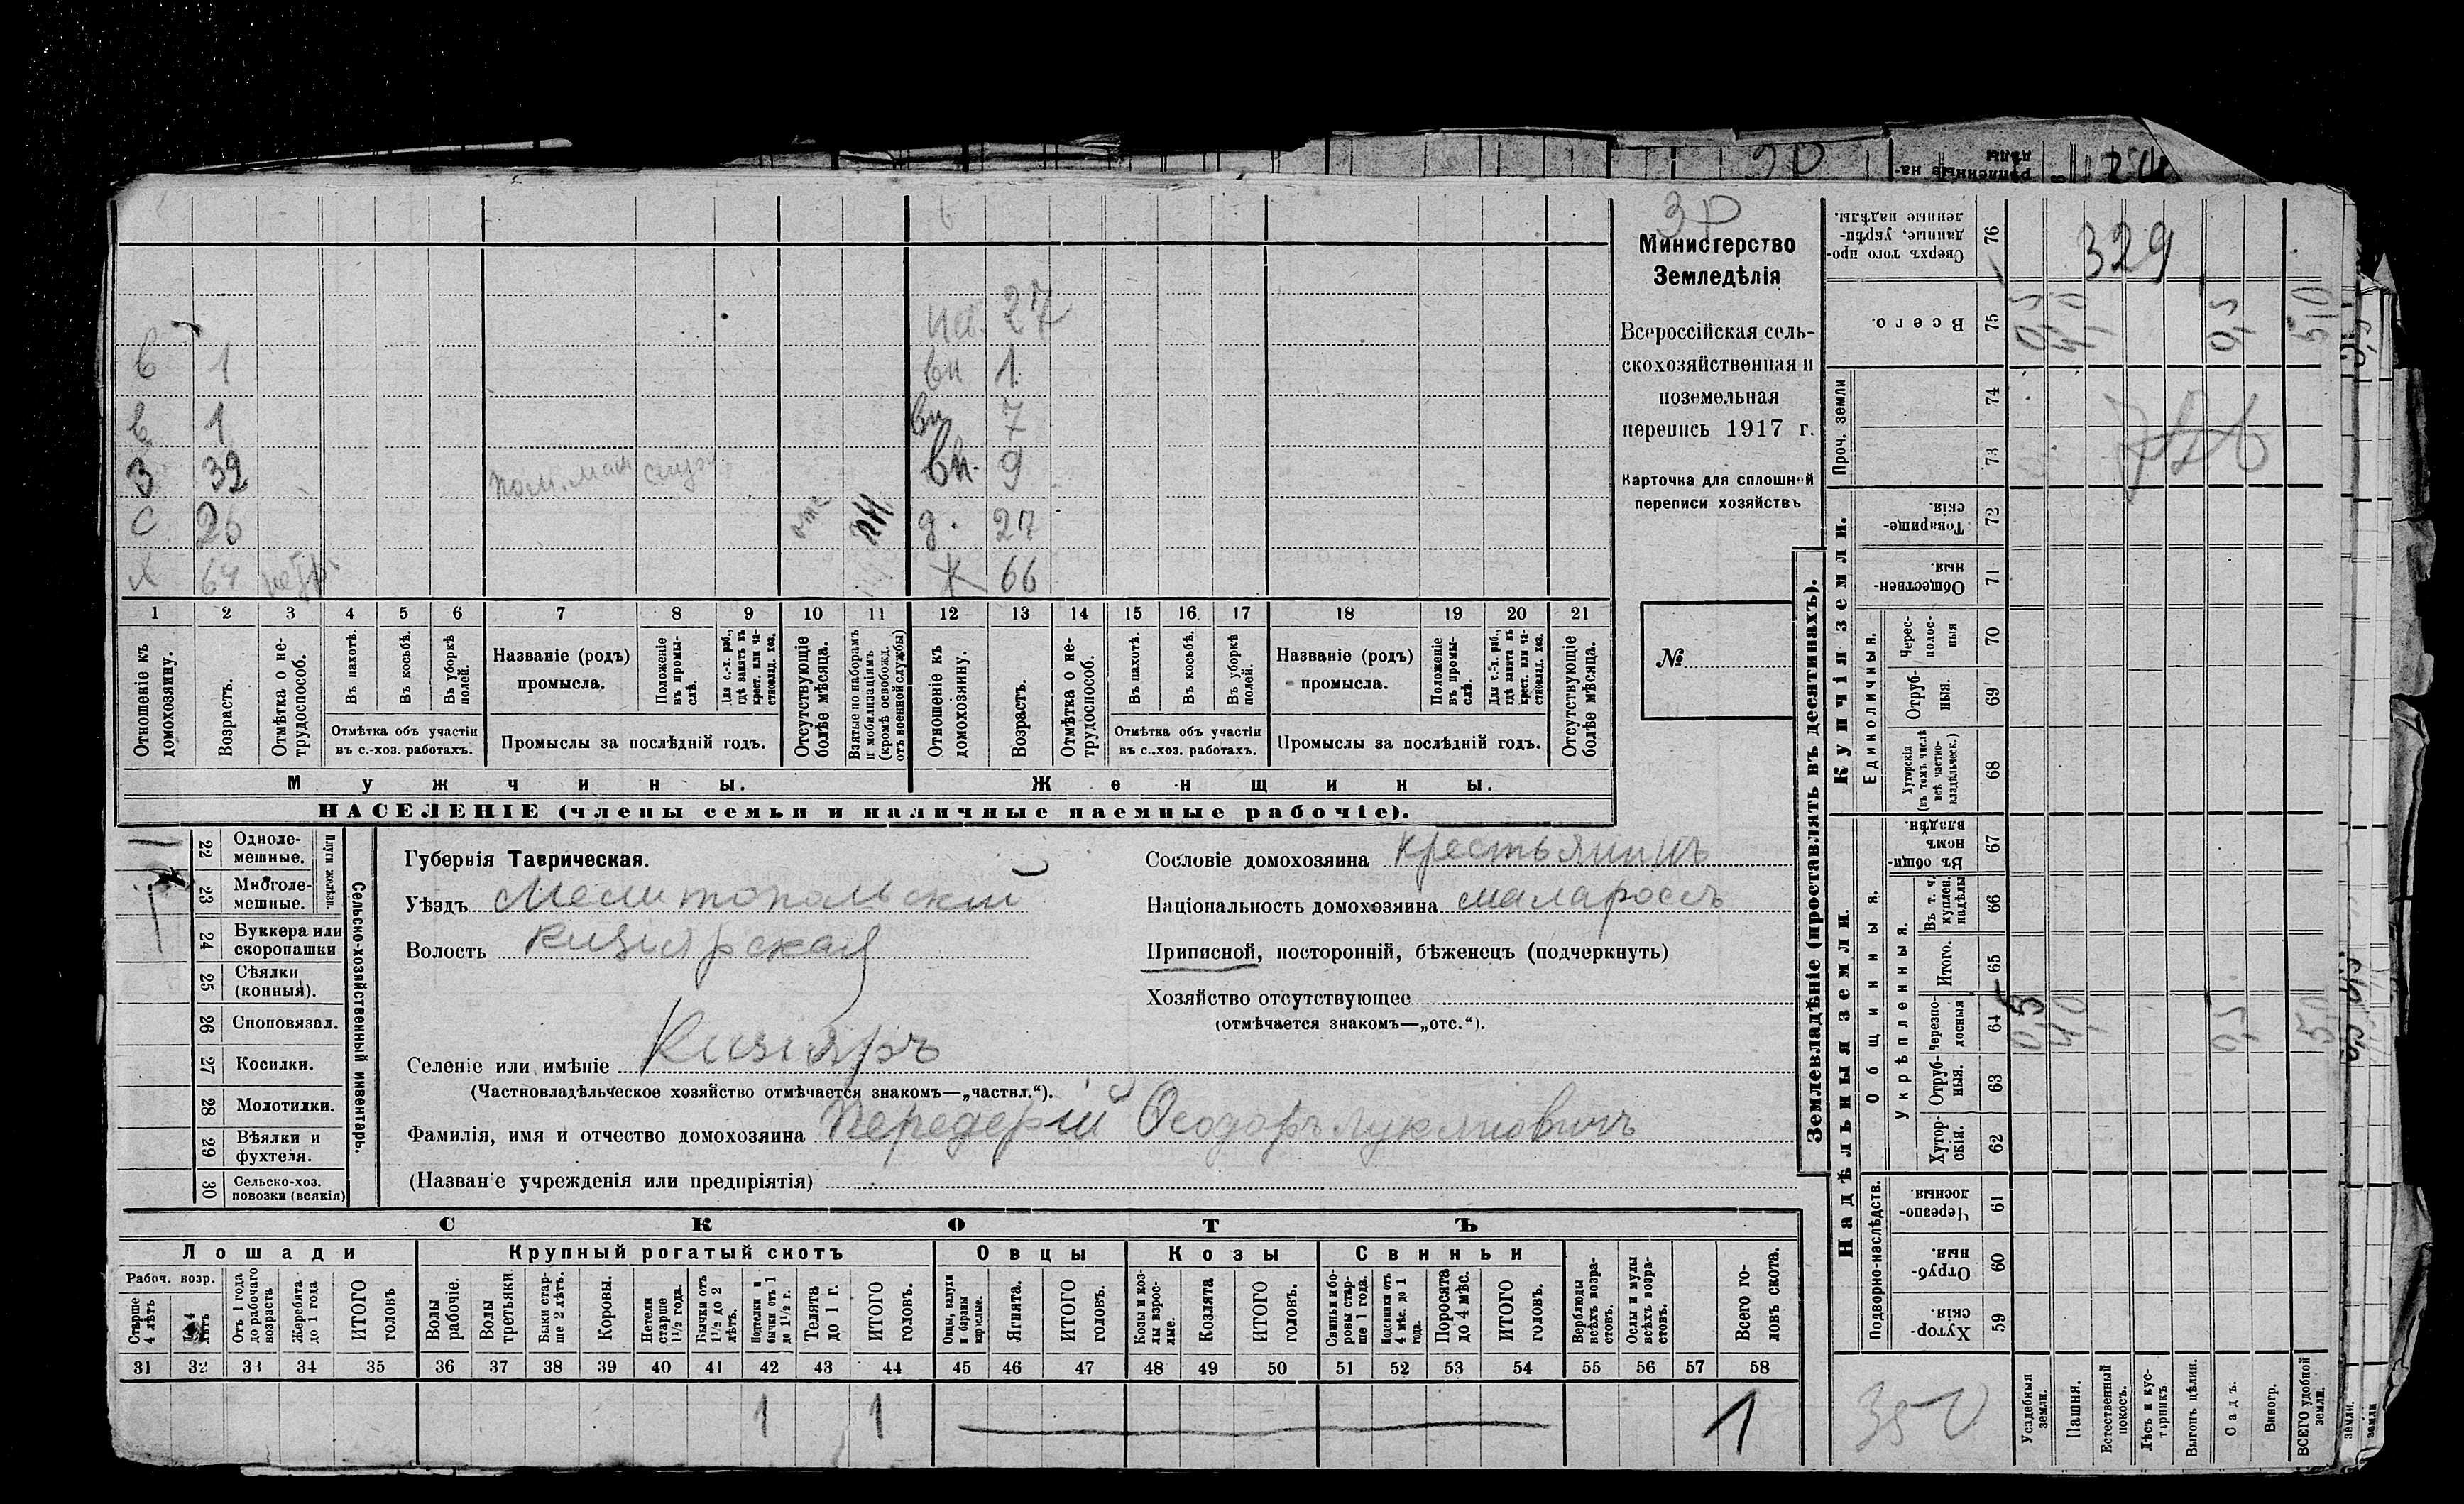 6
на. 27
в 1 вн 1
в 1 вн 7
З 32 пом. маш вн. 9
с 26 отс д. 27
х 64 ж 66
1 2 3 4 5 6 7 8 9 10 11 12 13 14 15 16 17 18 19 20 21
Отношеніе къ домохозяину.
Возрастъ.
Отмѣтка о нетрудоспособ.
Въ пахотѣ.
Въ косьбѣ.
Въ уборкѣ полей.
Отмѣтка объ участіи
въ с.-хоз. работахъ.
Названіе (родъ)
промысла.
Положеніе въ промыслѣ.
Для с.-х. раб., гдѣ занятъ въ крест. или частновлад. хоз.
Промыслы за послѣдній годъ.
Отсутствующіе болѣе мѣсяца.
Взятые по наборамъ и мобилизаціямъ (кромѣ освобожд. отъ военной службы)
Отношеніе къ домохозяину.
Возрастъ.
Отмѣтка о нетрудоспособ.
Въ пахотѣ.
Въ косьбѣ.
Въ уборкѣ полей.
Отмѣтка объ участіи
въ с.-хоз. работахъ.
Названіе (родъ)
промысла.
Положеніе въ промыслѣ.
Для с.-х. раб., гдѣ занята въ крест. или частновлад. хоз.
Промыслы за послѣдній годъ.
Отсутствующіе болѣе мѣсяца.
Мужчины. Женщины.
НАСЕЛЕНІЕ (члены семьи и наличные наемные рабочіе).
Министерство
Земледѣлія
Всероссійская сель-
скохозяйственная и
поземельная
перепись 1917 г.
Карточка для сплошной
переписи хозяйствъ
№
22 Одноле-
мешные.
23 Многоле-
мешные.
Плуги желѣзн.
24 Буккера или
скоропашки
25 Сѣялки
(конныя).
26 Сноповязал.
27 Косилки.
28 Молотилки.
29 Вѣялки и
фухтеля.
30 Сельско-хоз.
повозки (всякія)
Сельско-хозяйственный инвентарь.
Губернія Таврическая.
Уѣздъ Мелитопольскій
Волость Кизіярская
Селеніе или имѣніе Кизіяръ
(Частновладѣльческое хозяйство отмѣчается знакомъ—„частвл.“).
Фамилія, имя и отчество домохозяина Передерій Ѳеодоръ Лукяновичъ
(Назван е учрежденія или предпріятія)
Сословіе домохозяина крестьянинъ
Національность домохозяина маларосъ
Приписной, посторонній, бѣженецъ (подчеркнуть)
Хозяйство отсутствующее
(отмѣчается знакомъ—„отс.“).
СКОТЪ
Лошади Крупный рогатый скотъ Овцы Козы Свиньи
Рабоч. возр.
Старше 4 лѣтъ
До 4 лѣтъ
Отъ 1 года до рабочаго возраста
Жеребята до 1 года
ИТОГО головъ
Волы рабочіе.
Волы третьяки.
Быки старше 2 лѣтъ.
Коровы.
Нетели старше 1½ года.
Бычки отъ 1½ до 2 лѣтъ.
Подтелки и бычки отъ 1 до 1½ г.
Телята до 1 г.
ИТОГО головъ.
Овцы, валухи и бараны взрослые.
Ягнята.
ИТОГО головъ.
Козы и козлы взрослые.
Козлята
ИТОГО головъ.
Свиньи и боровы старше 1 года.
Подсвинки отъ 4 мѣс. до 1 года.
Поросята до 4 мѣс.
ИТОГО головъ.
Верблюды всѣхъ возрастовъ.
Ослы и мулы всѣхъ возрастовъ.
Всего головъ скота.
31 32 33 34 35 36 37 38 39 40 41 42 43 44 45 46 47 48 49 50 51 52 53 54 55 56 57 58
1 1 1
Землевладѣніе (проставлять въ десятинахъ).
Надѣльныя земли. Купчія земли. Проч. земли
Подворно-наслѣдств. Общинныя. Укрѣпленныя. Единоличныя.
76 Сверхъ того проданные, укрѣпленные надѣлы.
329
75 Всего. 0,5 4,0 0,5 5,0
74
73
72 Товарищескія.
71 Общественныя.
70 Чересполосныя
69 Отрубныя.
68 Хуторскія (въ томъ числѣ всѣ частновладѣльческ.)
67 Въ общинномъ владѣн.
66 Въ т. ч. куплен. надѣлы
65 Итого.
64 Черезполосныя 0,5 4,0 0,5 5,0
63 Отрубныя.
62 Хуторскія.
61 Черезполосныя.
60 Отрубныя.
59 Хуторскія.
350
Усадебныя земли.
Пашня.
Естественный покосъ.
Лѣсъ и кустарникъ
Выгонъ цѣлин.
Садъ.
Виногр.
ВСЕГО удобной земли.